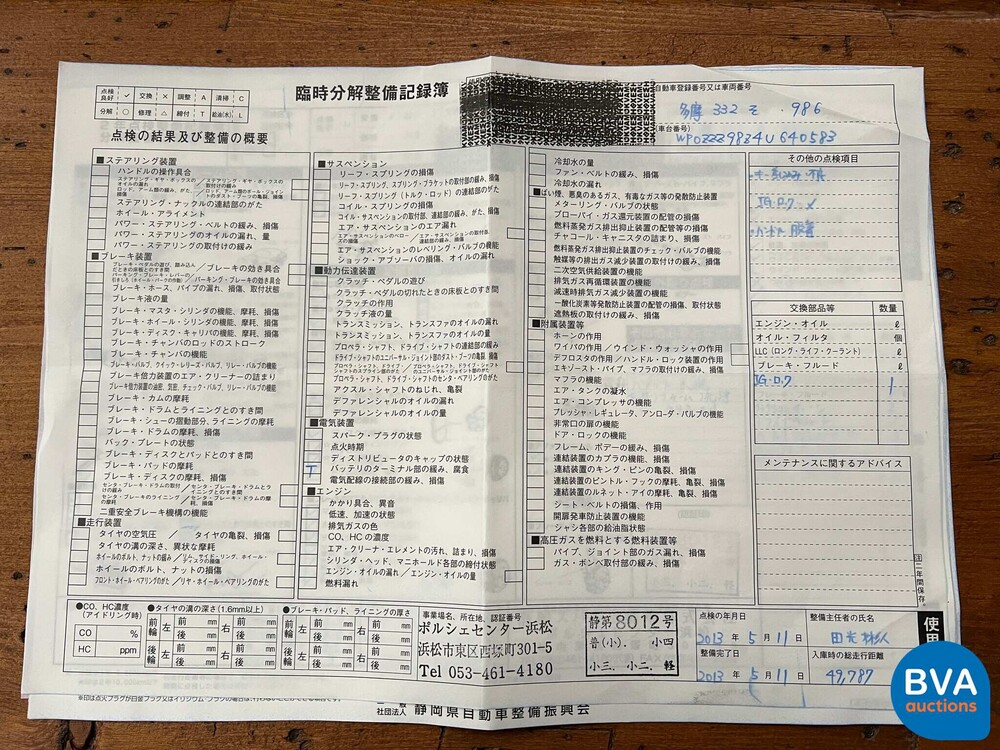 臨時分解整備記録簿
点検良好 ✓ 交換 × 調整 A 清掃 C
分解 ○ 修理 △ 締付 T 給油(水) L
自動車登録番号又は車両番号
多摩 332 そ 986
(車台番号)
WP0ZZZ98Z4U640583
点検の結果及び整備の概要
■ステアリング装置
ハンドルの操作具合
ステアリング・ギヤ・ボックスのオイルの漏れ／ステアリング・ギヤ・ボックスの取付けの緩み
ロッド、アーム類の緩み、がた、損傷／ロッド、アーム類のボール・ジョイントのダスト・ブーツの亀裂、損傷
ステアリング・ナックルの連結部のがた
ホイール・アライメント
パワー・ステアリング・ベルトの緩み、損傷
パワー・ステアリングのオイルの漏れ、量
パワー・ステアリングの取付けの緩み
■ブレーキ装置
ブレーキ・ペダルの遊び、踏み込んだときの床板とのすき間／ブレーキの効き具合
パーキング・ブレーキ・レバーの引きしろ(ホイール・パークの作動)／パーキング・ブレーキの効き具合
ブレーキ・ホース、パイプの漏れ、損傷、取付状態
ブレーキ液の量
ブレーキ・マスタ・シリンダの機能、摩耗、損傷
ブレーキ・ホイール・シリンダの機能、摩耗、損傷
ブレーキ・ディスク・キャリパの機能、摩耗、損傷
ブレーキ・チャンバのロッドのストローク
ブレーキ・チャンバの機能
ブレーキ・バルブ、クイック・レリーズ・バルブ、リレー・バルブの機能
ブレーキ倍力装置のエア・クリーナーの詰まり
ブレーキ倍力装置の油密、気密、チェック・バルブ、リレー・バルブの機能
ブレーキ・カムの摩耗
ブレーキ・ドラムとライニングとのすき間
ブレーキ・シューの摺動部分、ライニングの摩耗
ブレーキ・ドラムの摩耗、損傷
バック・プレートの状態
ブレーキ・ディスクとパッドとのすき間
ブレーキ・パッドの摩耗
ブレーキ・ディスクの摩耗、損傷
センタ・ブレーキ・ドラムの取付けの緩み／センタ・ブレーキ・ドラムとライニングとのすき間
センタ・ブレーキのライニングの摩耗／センタ・ブレーキ・ドラムの摩耗、損傷
二重安全ブレーキ機構の機能
■走行装置
タイヤの空気圧 ／ タイヤの亀裂、損傷
タイヤの溝の深さ、異状な摩耗
ホイールのボルト、ナットの緩み／リム、サイド・リング、ホイール・ディスクの損傷
ホイールのボルト、ナットの損傷
フロント・ホイール・ベアリングのがた／リヤ・ホイール・ベアリングのがた
■サスペンション
リーフ・スプリングの損傷
リーフ・スプリング、スプリング・ブラケットの取付部の緩み、損傷
リーフ・スプリング(トルク・ロッド)の連結部のがた
コイル・スプリングの損傷
コイル・サスペンションの取付部、連結部の緩み、がた、損傷
エア・サスペンションのエア漏れ
エア・サスペンションのベローズの損傷／エア・サスペンションの取付部、連結部の緩み、損傷
エア・サスペンションのレベリング・バルブの機能
ショック・アブソーバの損傷、オイルの漏れ
■動力伝達装置
クラッチ・ペダルの遊び
クラッチ・ペダルの切れたときの床板とのすき間
クラッチの作用
クラッチ液の量
トランスミッション、トランスファのオイルの漏れ
トランスミッション、トランスファのオイルの量
プロペラ・シャフト、ドライブ・シャフトの連結部の緩み
ドライブ・シャフトのユニバーサル・ジョイント部のダスト・ブーツの亀裂、損傷
プロペラ・シャフト、ドライブ・シャフトのスプライン部のがた／プロペラ・シャフト、ドライブ・シャフトのユニバーサル・ジョイント部のがた
プロペラ・シャフト、ドライブ・シャフトのセンタ・ベアリングのがた
アクスル・シャフトのねじれ、亀裂
デファレンシャルのオイルの漏れ
デファレンシャルのオイルの量
■電気装置
スパーク・プラグの状態
点火時期
ディストリビュータのキャップの状態
T バッテリのターミナル部の緩み、腐食
電気配線の接続部の緩み、損傷
■エンジン
かかり具合、異音
低速、加速の状態
排気ガスの色
CO、HCの濃度
エア・クリーナ・エレメントの汚れ、詰まり、損傷
シリンダ・ヘッド、マニホールド各部の締付状態
エンジン・オイルの漏れ／エンジン・オイルの量
燃料漏れ
冷却水の量
ファン・ベルトの緩み、損傷
冷却水の漏れ
■ばい煙、悪臭のあるガス、有毒なガス等の発散防止装置
メターリング・バルブの状態
ブローバイ・ガス還元装置の配管の損傷
燃料蒸発ガス排出抑止装置の配管等の損傷
チャコール・キャニスタの詰まり、損傷
燃料蒸発ガス排出抑止装置のチェック・バルブの機能
触媒等の排出ガス減少装置の取付けの緩み、損傷
二次空気供給装置の機能
排気ガス再循環装置の機能
減速時排気ガス減少装置の機能
一酸化炭素等発散防止装置の配管の損傷、取付状態
遮熱板の取付けの緩み、損傷
■附属装置等
ホーンの作用
ワイパの作用／ウインド・ウォッシャの作用
デフロスタの作用／ハンドル・ロック装置の作用
エキゾースト・パイプ、マフラの取付けの緩み、損傷
マフラの機能
エア・タンクの凝水
エア・コンプレッサの機能
プレッシャ・レギュレータ、アンローダ・バルブの機能
非常口の扉の機能
ドア・ロックの機能
フレーム、ボデーの緩み、損傷
連結装置のカプラの機能、損傷
連結装置のキング・ピンの亀裂、損傷
連結装置のピントル・フックの摩耗、亀裂、損傷
連結装置のルネット・アイの摩耗、亀裂、損傷
シート・ベルトの損傷、作用
開扉発車防止装置の機能
シャシ各部の給油脂状態
■高圧ガスを燃料とする燃料装置等
パイプ、ジョイント部のガス漏れ、損傷
ガス・ボンベ取付部の緩み、損傷
その他の点検項目
IG.ロック ×
・ハンドル 脱着
交換部品等 数量
エンジン・オイル ℓ
オイル・フィルタ 個
LLC(ロング・ライフ・クーラント) ℓ
ブレーキ・フルード ℓ
IG.ロック 1
メンテナンスに関するアドバイス
注 二年間保存。
使用
●CO、HC濃度(アイドリング時)
CO %
HC ppm
●タイヤの溝の深さ(1.6mm以上)
前輪 左 前 mm 後 mm 右 前 mm 後 mm
後輪 左 前 mm 後 mm 右 前 mm 後 mm
●ブレーキ・パッド、ライニングの厚さ
前輪 左 前 mm 後 mm 右 前 mm 後 mm
後輪 左 前 mm 後 mm 右 前 mm 後 mm
事業場名、所在地、認証番号
ポルシェセンター浜松
浜松市東区西塚町301-5
Tel 053-461-4180
静第8012号
普(小). 小四
小三. 小二. 軽
点検の年月日
2013 年 5 月 11 日
整備完了日
2013 年 5 月 11 日
整備主任者の氏名
入庫時の総走行距離
49,787
社団法人 静岡県自動車整備振興会
BVA
auctions